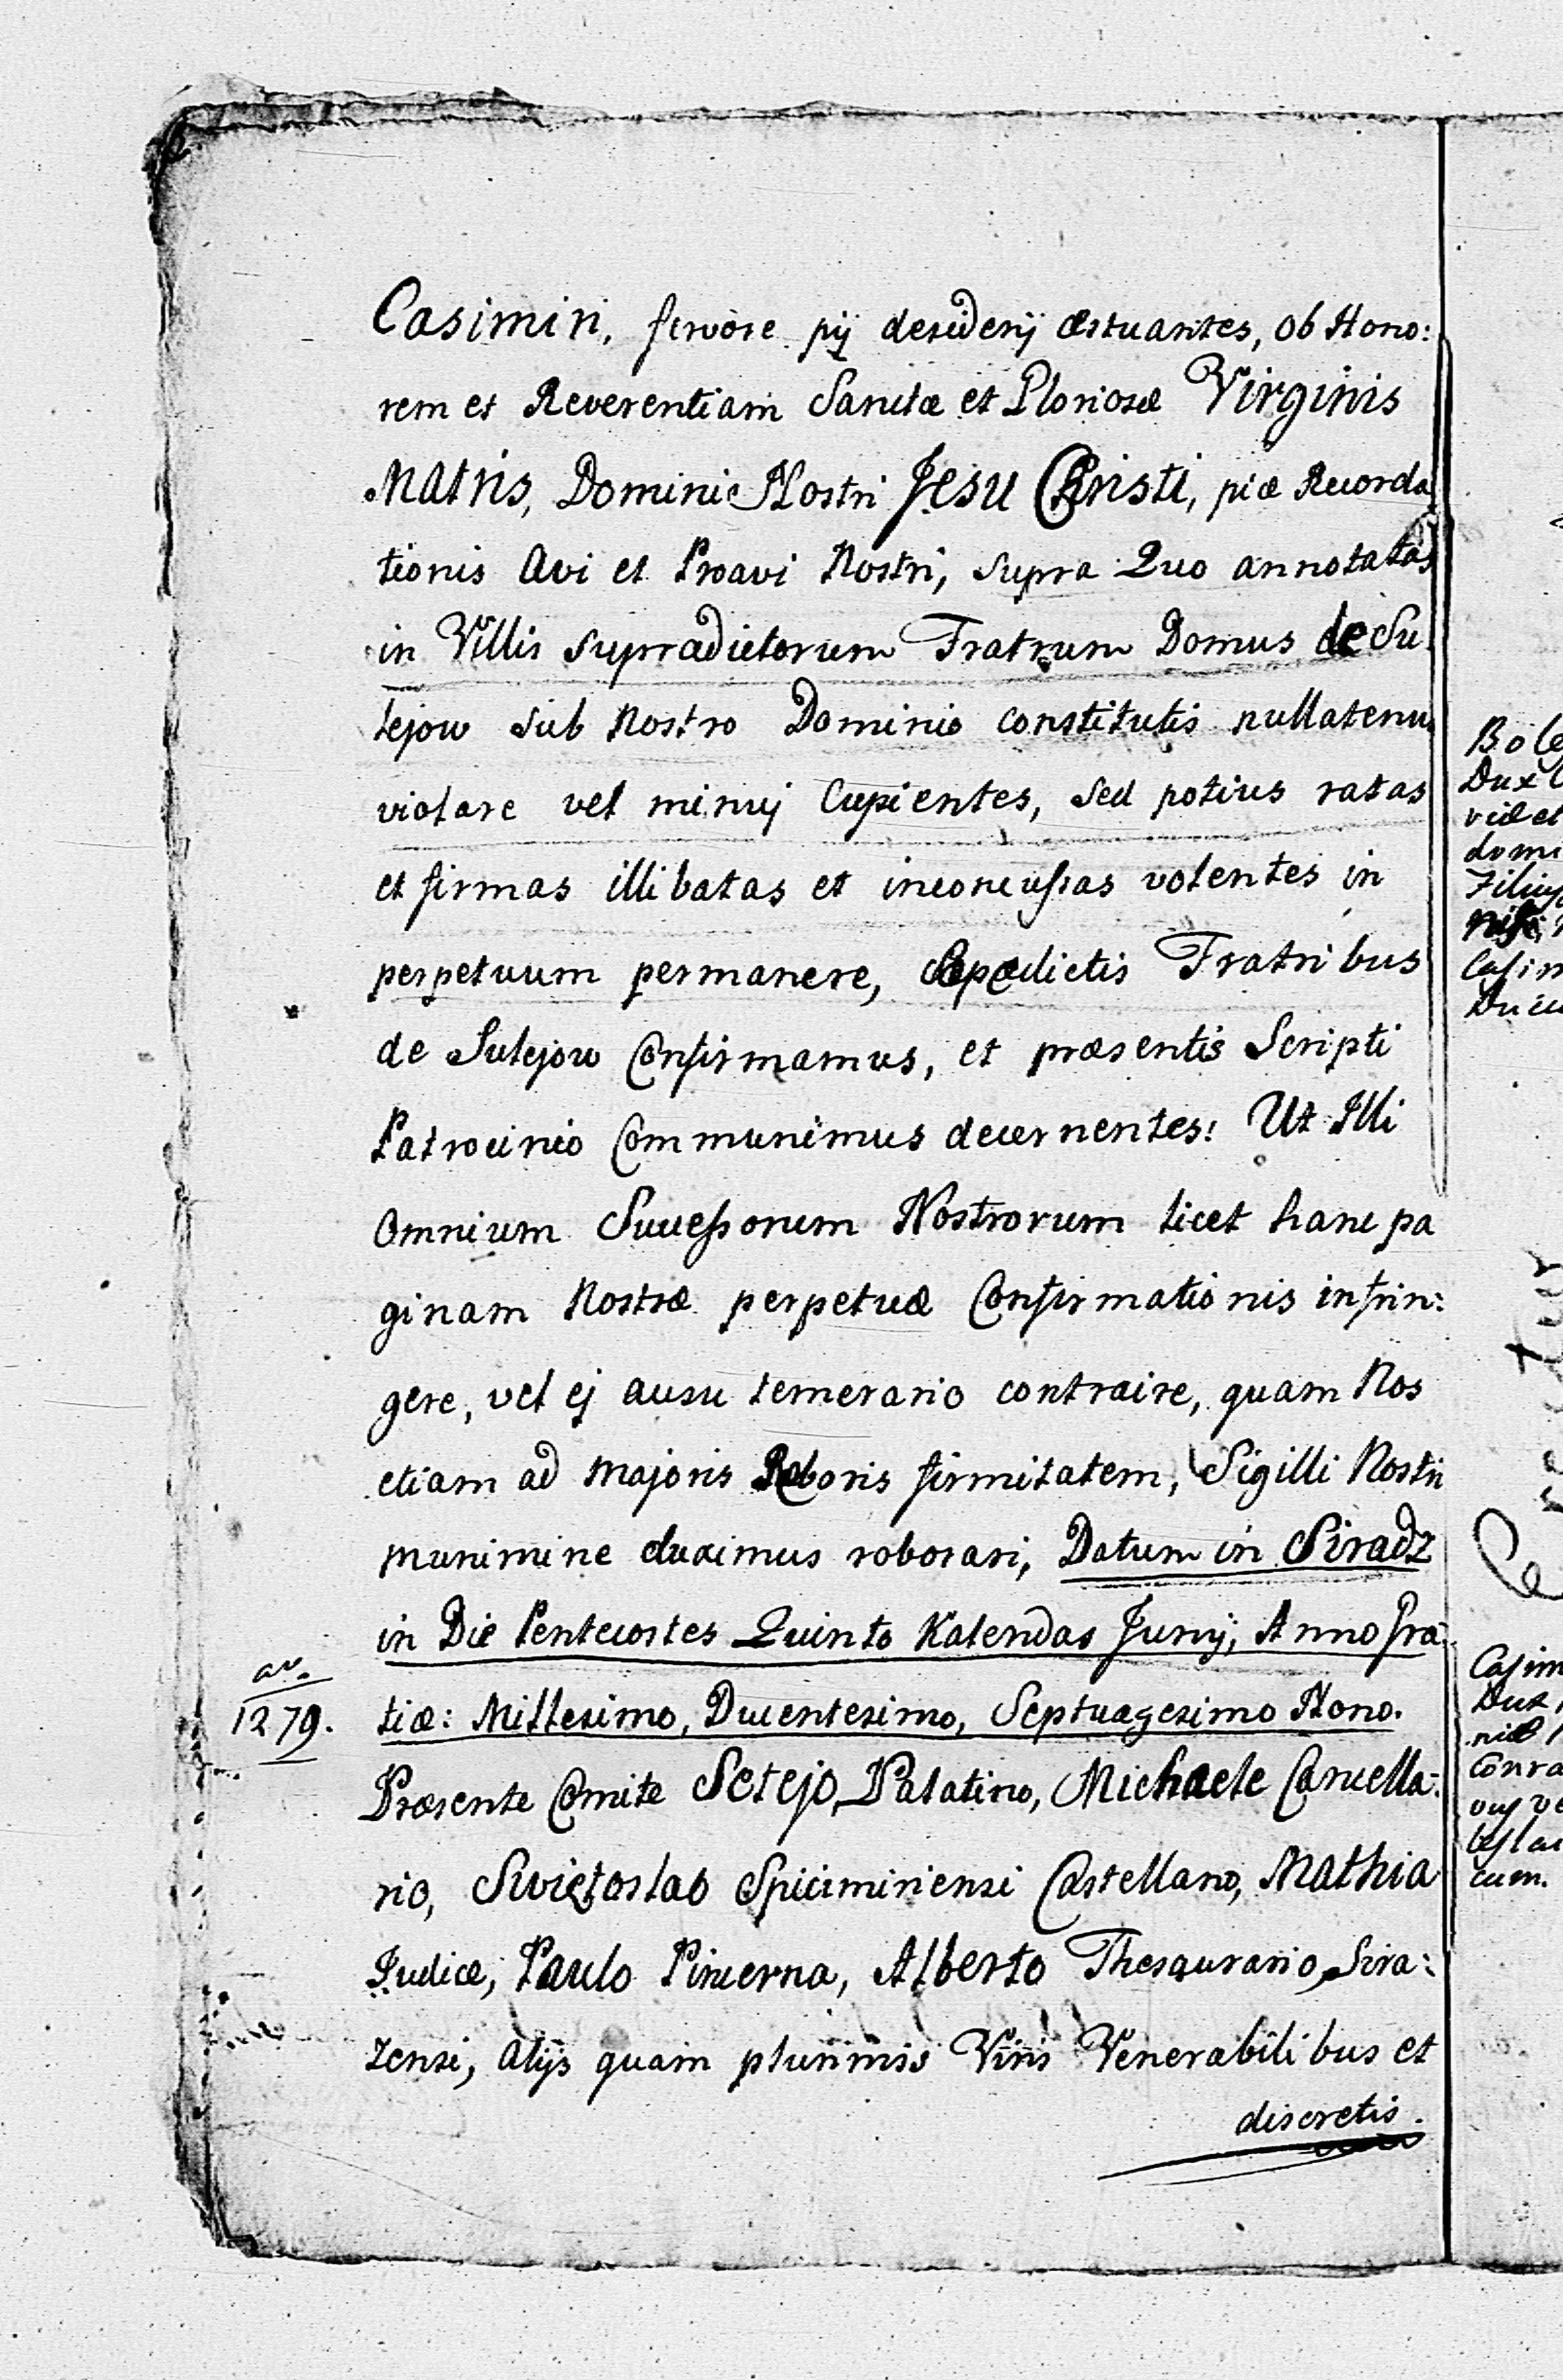 Casimiri, fervore pij desiderij æstuantes, ob Hono:
rem et Reverentiam Sanctæ et Gloriosæ Virginis
Matris, Domini Nostri Jesu Christi, piæ Recorda
tionis Avi et Proavi Nostri, supra Quo annotatas
in Villis supradictorum Fratrum Domus de Su
lejow sub Nostro Dominio constitutis nullatenus
violare vel minuj Cupientes, sed potius ratas
et firmas illibatas et inconcussas volentes in
perpetuum permanere, Sæpædictis Fratribus
de Sulejow Confirmamus, et præsentis Scripti
Patrocinio Communimus decernentes: Ut Illi
Omnium Successorum Nostrorum licet hanc pa
ginam Nostræ perpetuæ Confirmationis infrin:
gere, vel ej ausu temerario contraire, quam Nos
etiam ad Majoris Roboris firmitatem, Sigilli Nostri
munimine duximus roborari, Datum in Siradz
in Die Pentecostes Quinto Kalendas Junij, Anno Gra:
1279. tiæ: Millesimo, Ducentesimo, Septuagesimo Nono.
Præsente Comite Setejo, Palatino, Michaele Cancella:
rio, Swiętoslao Spicimiriensi Castellano, Mathia
Judice, Paulo Pincerna, Alberto Thesaurario, Sira:
zensi, Alijs quam plurimis Viris Venerabilibus et
discretis.
Bole
Dux C
viæ et
domi
Filius
Casim
Ducu
Casim
Dux
niæ
Conra
cum.